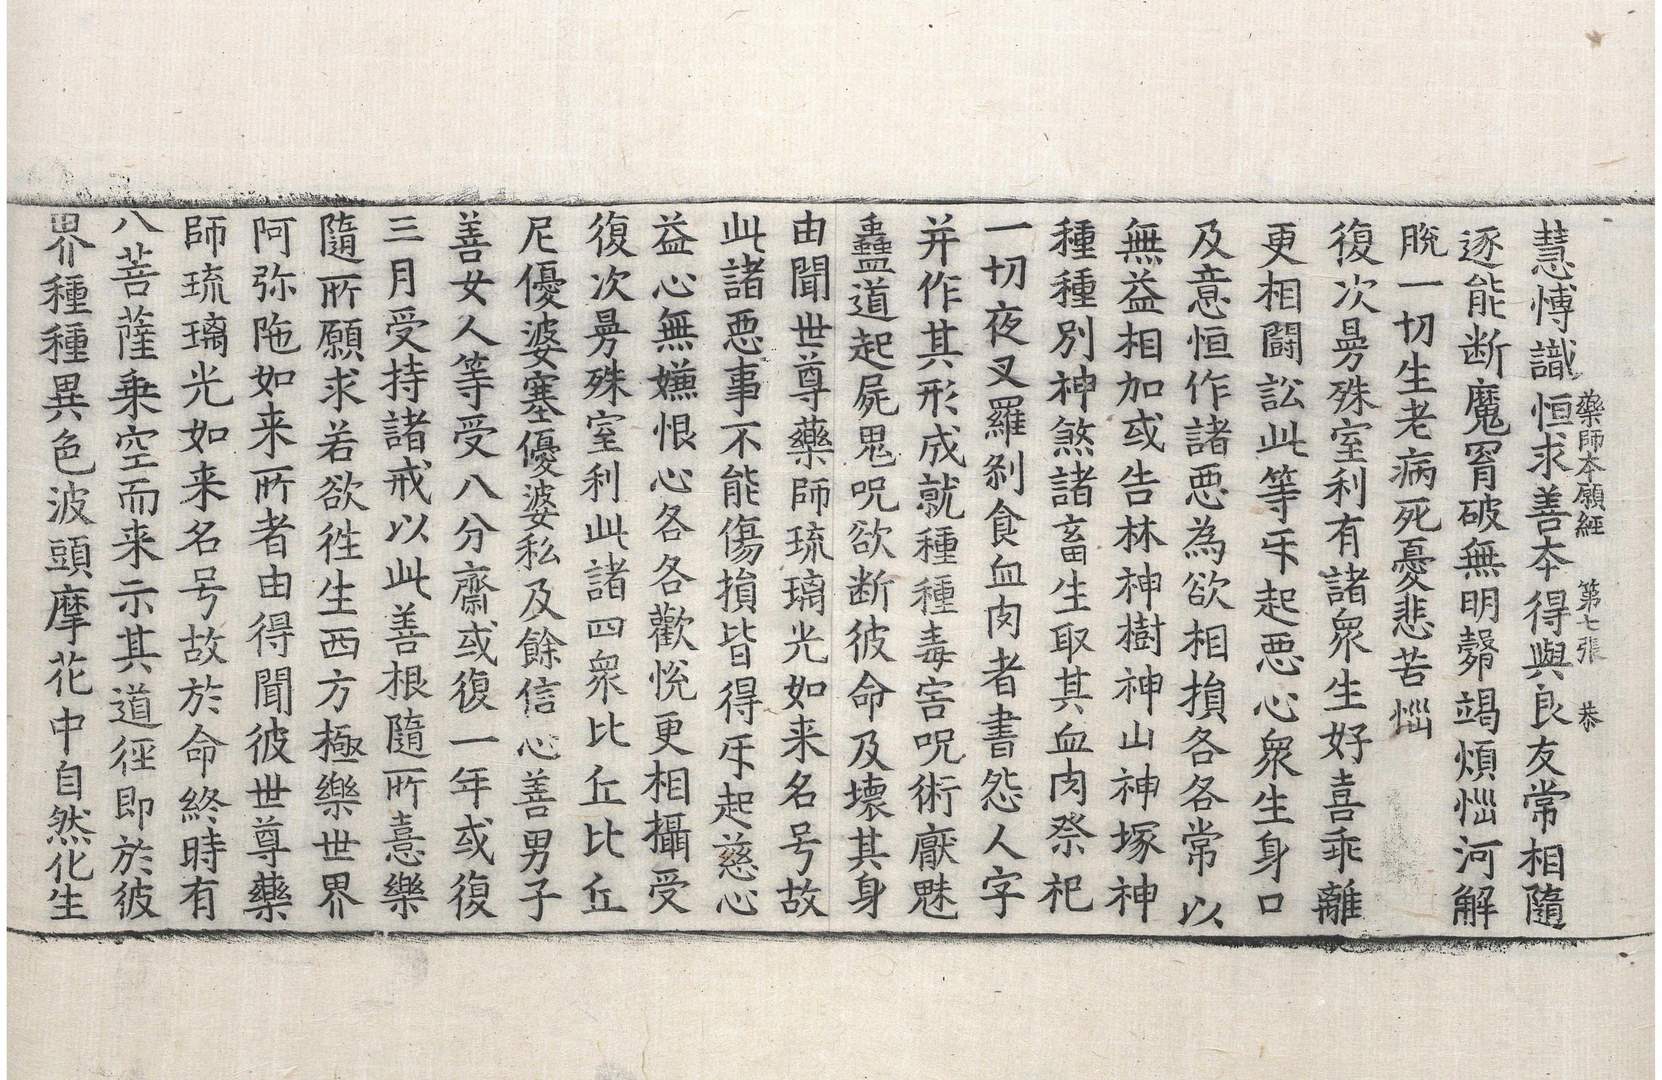 藥師本願經 第七張 恭
慧愽識恒求善本得與良友常相隨
逐能断魔罥破無明㲉竭煩惱河解
脫一切生老病死憂悲苦惱
復次曼殊室利有諸衆生好喜乖離
更相闘訟此等互起恶心衆生身口
及意恒作諸恶為欲相損各各常以
無益相加或告林神樹神山神塚神
種種別神煞諸畜生取其血肉祭祀
一切夜叉羅刹食血肉者書怨人字
并作其形成就種種毒害呪術厭魅
蠱道起屍鬼呪欲断彼命及壊其身
由聞世尊藥師琉璃光如来名号故
此諸恶事不能傷損皆得互起慈心
益心無嫌恨心各各歡悅更相攝受
復次曼殊室利此諸四衆比丘比丘
尼優婆塞優婆私及餘信心善男子
善女人等受八分齋或復一年或復
三月受持諸戒以此善根隨所憙樂
隨所願求若欲徃生西方極樂世界
阿弥陁如来所者由得聞彼世尊藥
師琉璃光如来名号故於命終時有
八菩薩乗空而来示其道徑即於彼
界種種異色波頭摩花中自然化生